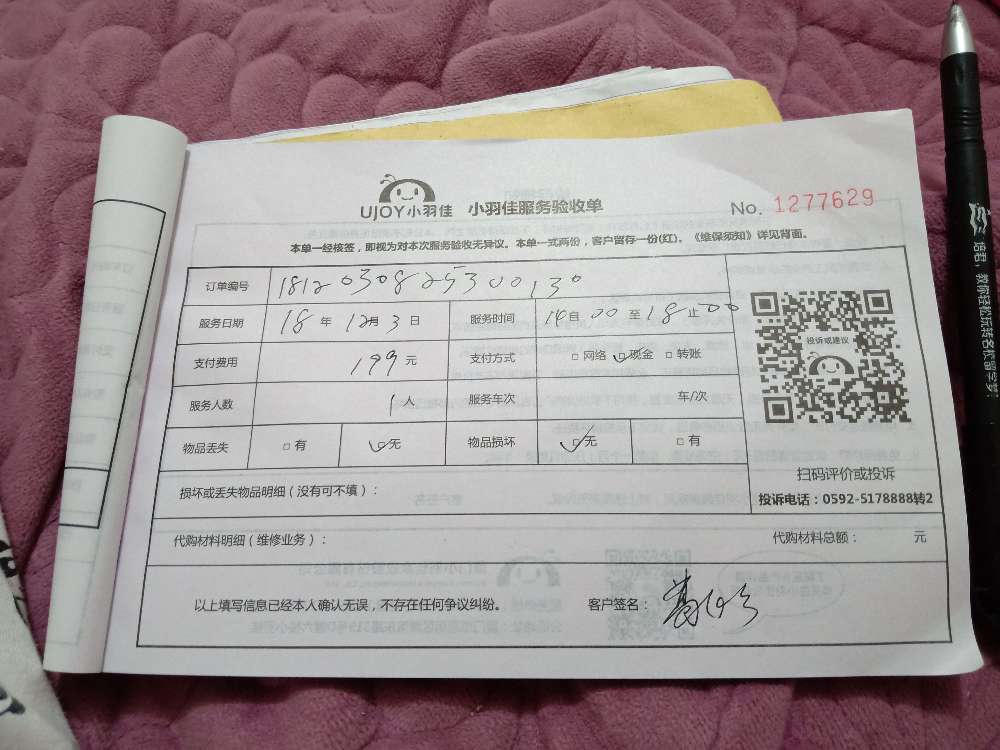 UJOY小羽佳 小羽佳服务验收单 No. 1277629
本单一经核签，即视为对本次服务验收无异议。本单一式两份，客户留存一份(红)。《维保须知》详见背面。
订单编号 1812030825300130
服务日期 18 年 12月 3 日 服务时间 14自 00 至 18 止 00
支付费用 199 元 支付方式 □ 网络 □ 现金 □ 转账
服务人数 1 人 服务车次 车/次
物品丢失 □ 有 □ 无 物品损坏 □ 无 □ 有
投诉或建议
扫码评价或投诉
投诉电话：0592-5178888转2
损坏或丢失物品明细（没有可不填）：
代购材料明细（维修业务）： 代购材料总额： 元
以上填写信息已经本人确认无误，不存在任何争议纠纷。 客户签名：
培君，教你轻松玩转名校留学梦！